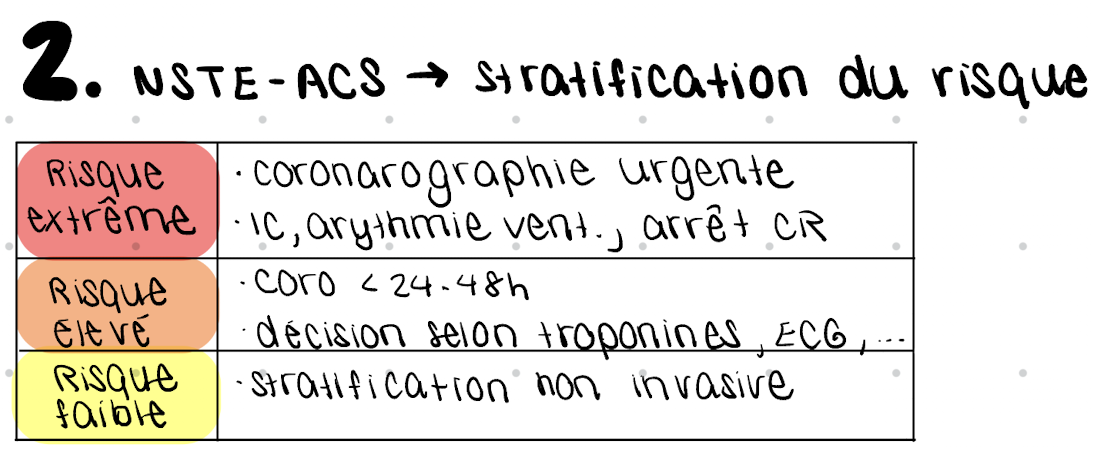 2. NSTE-ACS → stratification du risque
Risque extrême
· coronarographie urgente
· IC, arythmie vent., arrêt CR
Risque élevé
· coro < 24-48h
· décision selon troponines, ECG, ...
Risque faible
· stratification non invasive